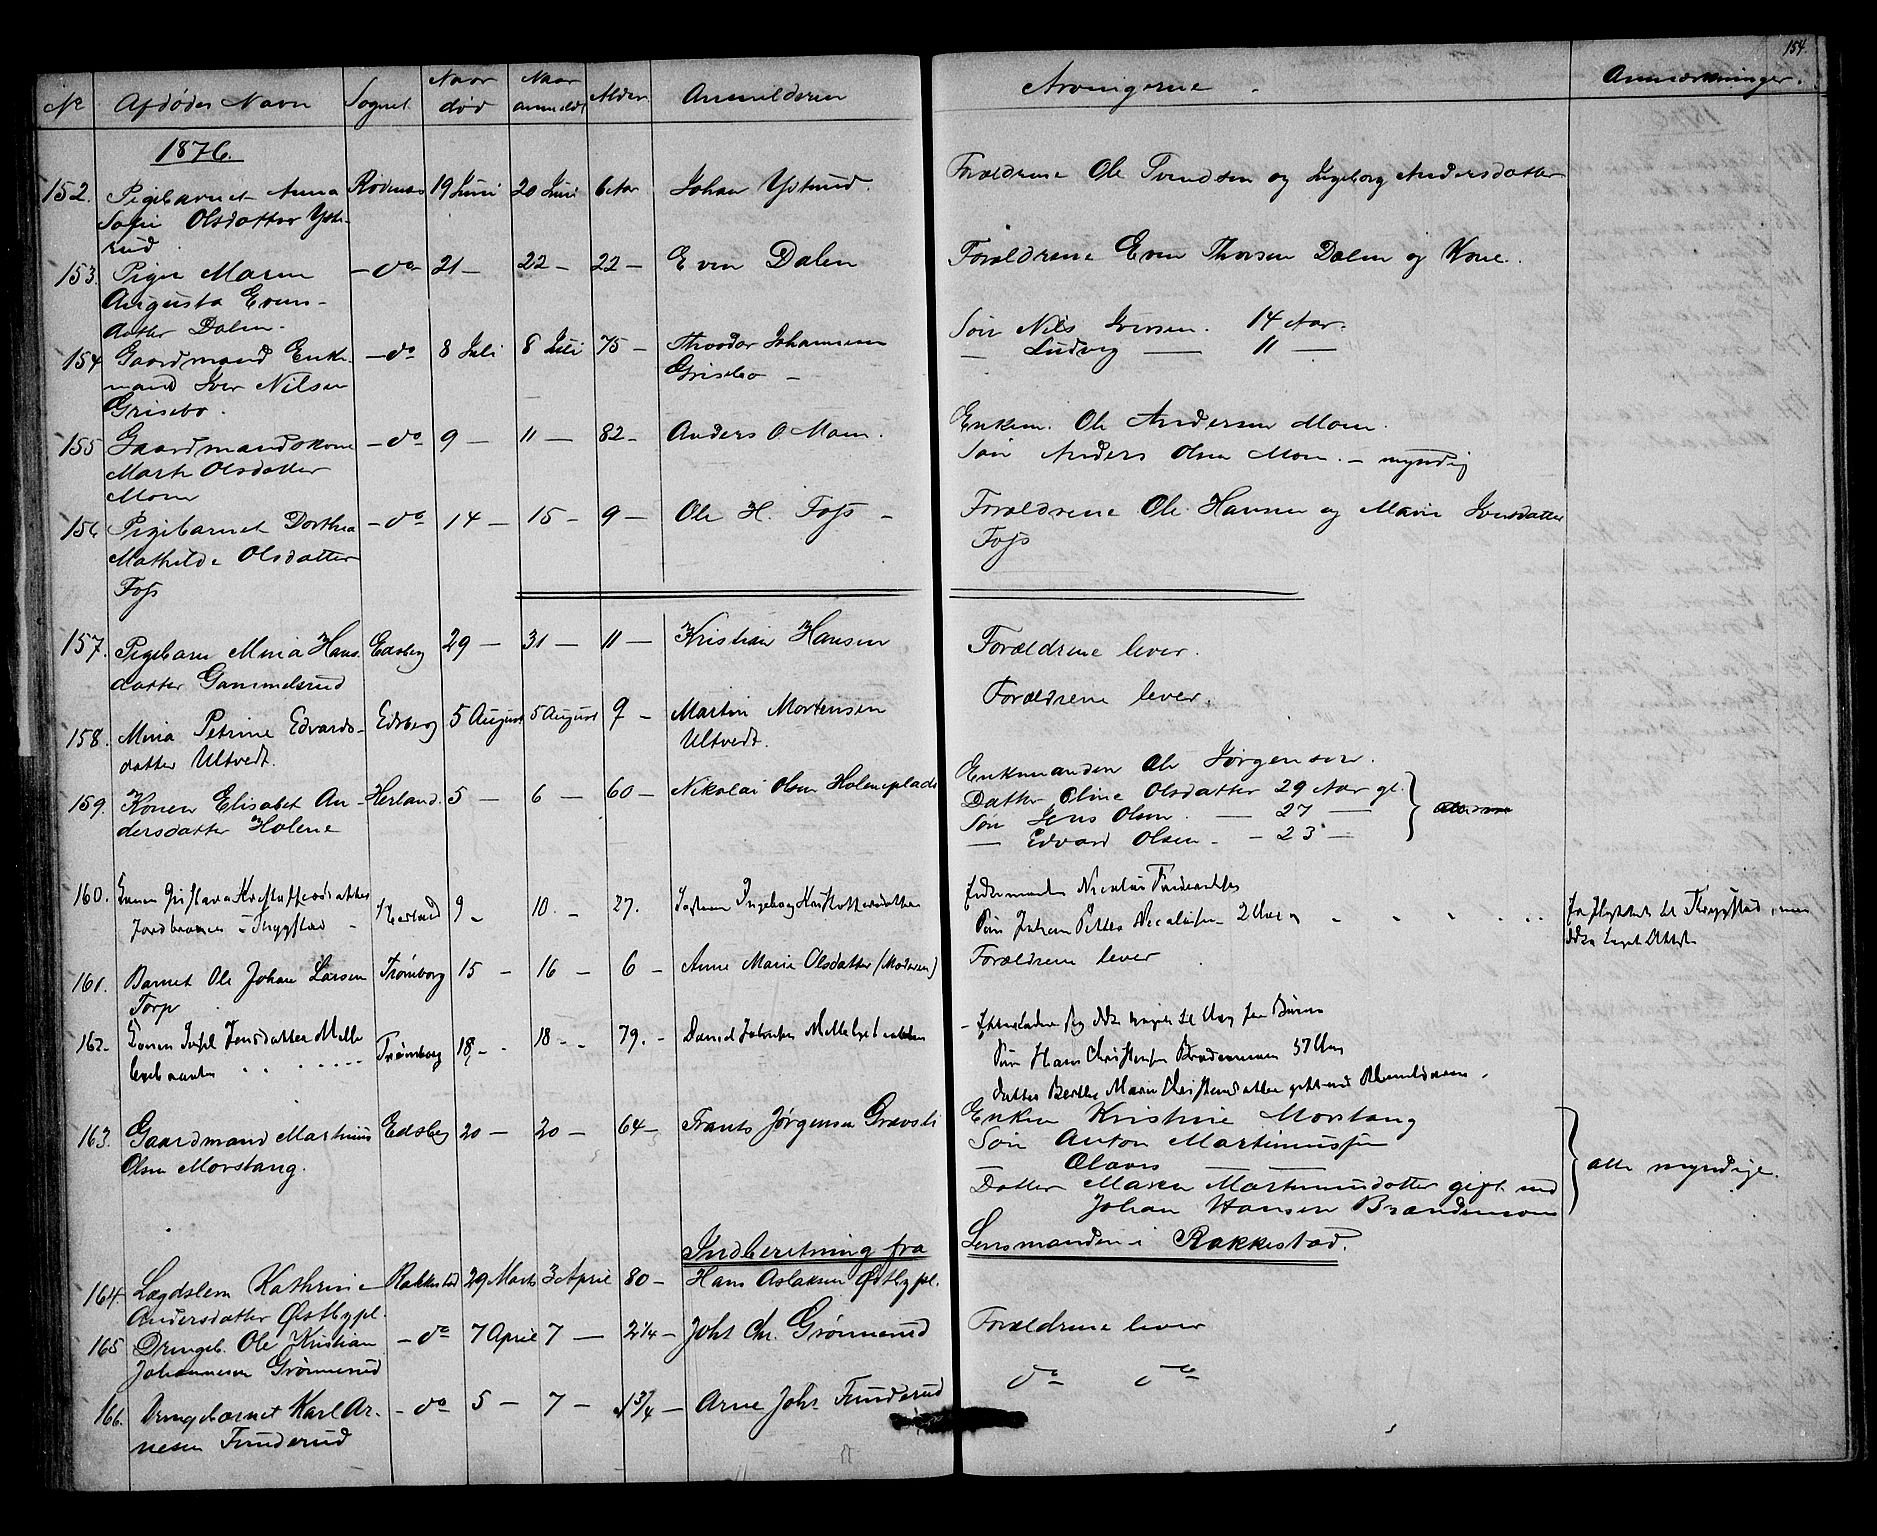 154.
No Afdødes Navn Sognet Naar død Naar anmeldt Alder Anmelderen Arvingerne Anmærkninger.
1876.
152. Pigebarnet Anna Rødenæs 19 Juni 20 Juni 6 Aar Johan Ystrud. Forældrene Ole Svendsen og Ingeborg Andersdatter
Sofie Olsdatter Yst-
rud
153. Pige Maren - do 21 - 22 - 22 - Even Dalen Forældrene Even Thorsen Dalen og Kone.
Augusta Evens-
datter Dalen.
154 Gaardmand Enke- - do 8 Juli 8 Juli 75 - Theodor Johannesen Søn Nils Iversen. 14 Aar.
mand Iver Nilsen Grisebo - — Ludvig — 11 —
Grisebo.
155 Gaardmandskone - do 9 - 11 - 82 - Anders O Moen. Enkem. Ole Andersen Moen.
Marte Olsdatter Søn Anders Olsen Moen. - myndig
Moen
156 Pigebarnet Dorthea - do 14 - 15 - 9 - Ole H. Foss - Forældrene Ole Hansen og Marie Iversdatter
Mathilde Olsdatter Foss
Foss
157. Pigebarn Mina Hans- Edsberg 29 - 31 - 11 - Kristian Hansen Forældrene lever.
datter Gammelsrud
158. Mina Petrine Edvards- Edsberg 5 August 5 August 9 - Martin Mortensen Forældrene lever.
datter Ultvedt. Ultvedt.
159. Konen Elisabet An- Herland. 5 - 6 - 60 - Nikolai Olsen Holeneplads Enkemanden Ole Jørgensen.
dersdatter Holene Datter Oline Olsdatter 29 Aar gl.
Søn Jens Olsen. — 27 —
— Edvard Olsen - - 23 -
160. Konen Gustava Kristoffersdatter Herland 9 - 10. - 27. Søsteren Ingeborg Kristoffersdatter Enkemanden Nicolai
i Trygstad - Søn Johan Petter 2 Aar til Trygstad, men
161. Barnet Ole Johan Larsen Trømborg 15 - 16 - 6 - Anne Marie Olsdatter (Moderen) Forældrene lever
Torp
162. Konen Jensdatter Melle- Trømborg 18 - 18 - 79. - Daniel - Efterlader sig ikke
Søn Hans Christensen 57 Aar
Datter Berthe Marie Christensdatter gift med Anmelderen.
163. Gaardmand Martinius Edsberg 20 - 20 - 64 - Frants Jørgensen Gravsli Enken Kristine Morstang
Olsen Morstang. Søn Anton Martiniussen
— Olaves — alle myndige.
Datter Maren Martiniusdatter gift med
Johan Hansen Brandemoen
Indberetning fra Lensmanden i Rakkestad.
164. Lægdslem Kathrine Rakkestad 29 Marts 3 April 80 - Hans Aslaksen Østbypl.
Andersdatter Østbypl.
165 Drengeb. Ole Kristian - do 7 April 7 - 2¼ - Joht Chr. Grønnerud Forældrene lever
Johannesen Grønnerud
166. Drengebarnet Karl Ar- - do 5 - 7 - 1¾ - Arne Johs. Funderud do do
nesen Funderud